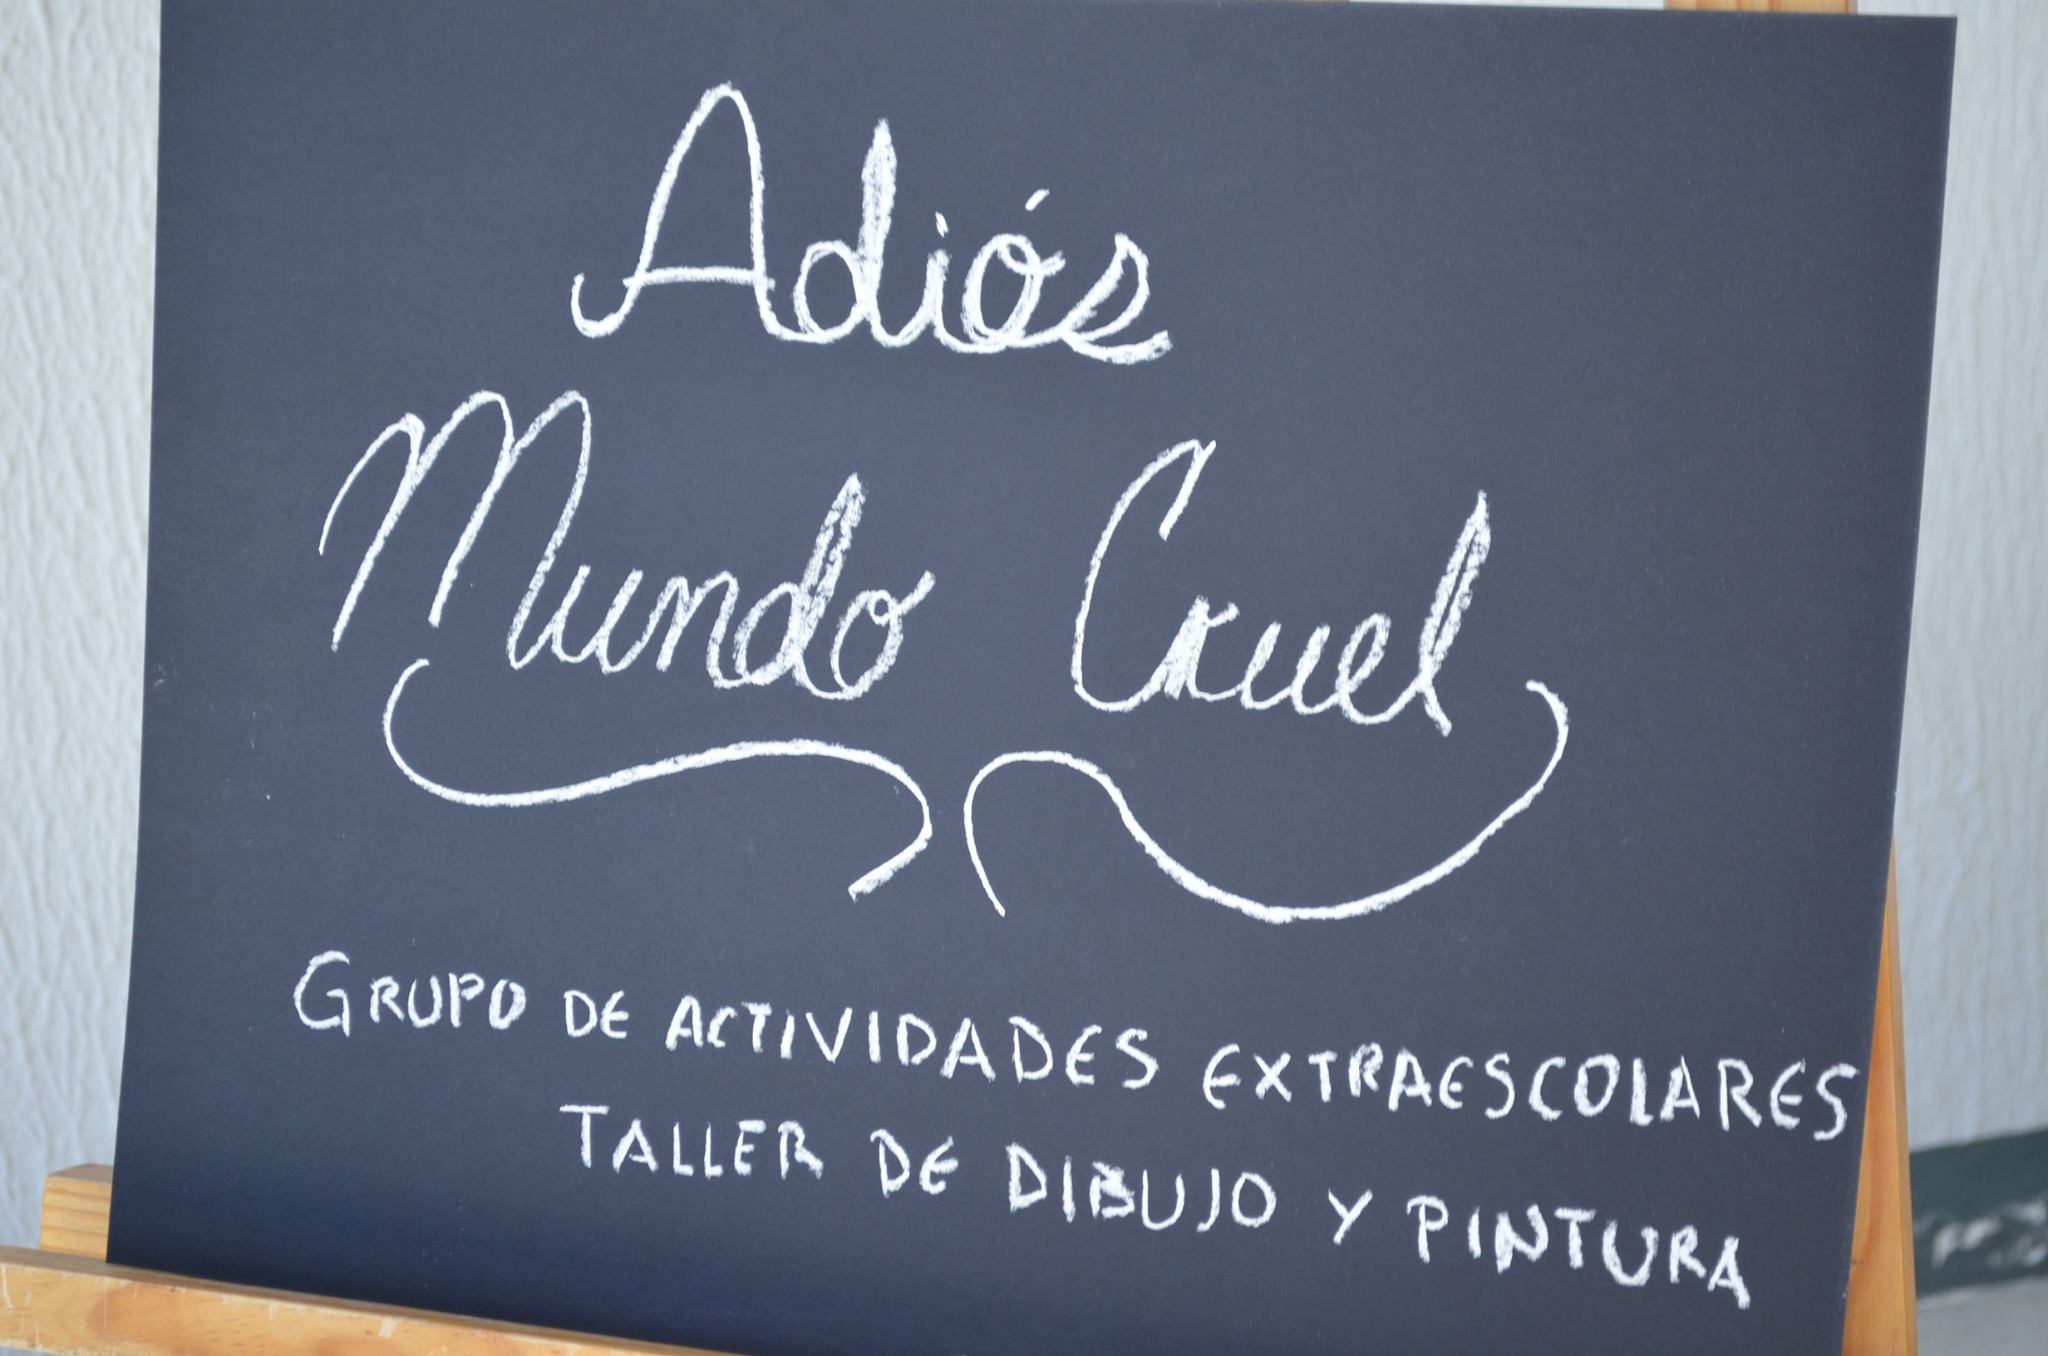 Adiós
Mundo Cruel
GRUPO DE ACTIVIDADES EXTRAESCOLARES
TALLER DE DIBUJO Y PINTURA